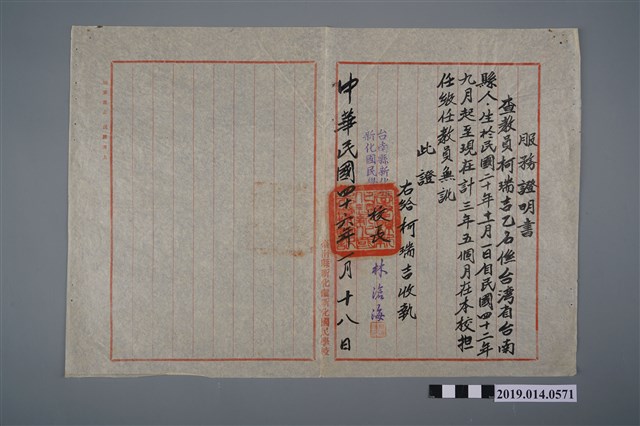 服務證明書
查教員柯瑞吉乙名係台灣省台南
縣人，生於民國二十年十一月一日自民國四十二年
九月起至現在計三年五個月在本校担
任級任教員無訛
此證
右給柯瑞吉收執
台南縣新化
新化國民學
校長 林滄海
中華民國四十六年一月十八日
新化國民學校
2019.014.0571